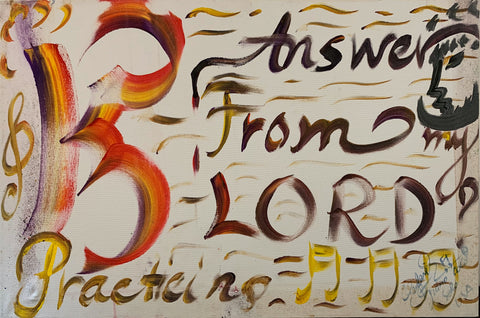 B
Answer
From my
LORD
Practicing